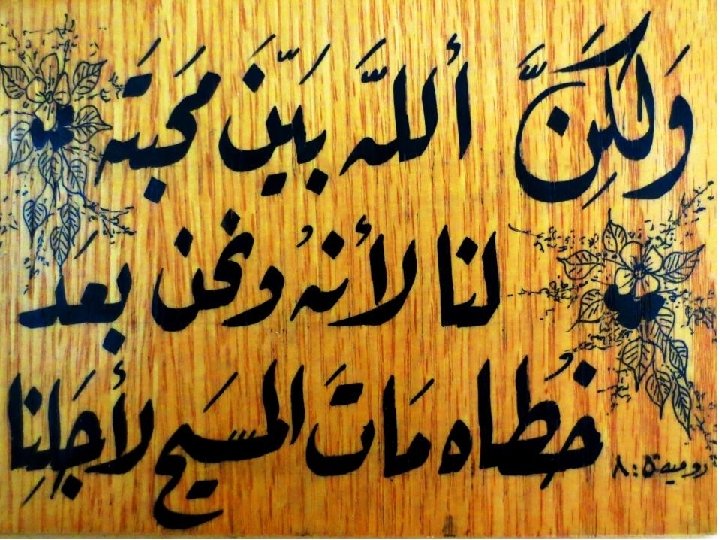 وَلَكِنَّ أللَّه بَيَّنَ مَحَبَتَه
لنا لأنهُ ونحن بعد
خُطاه مَاتَ المسَيح لأجَلِنا
رومية ٥ : ٨